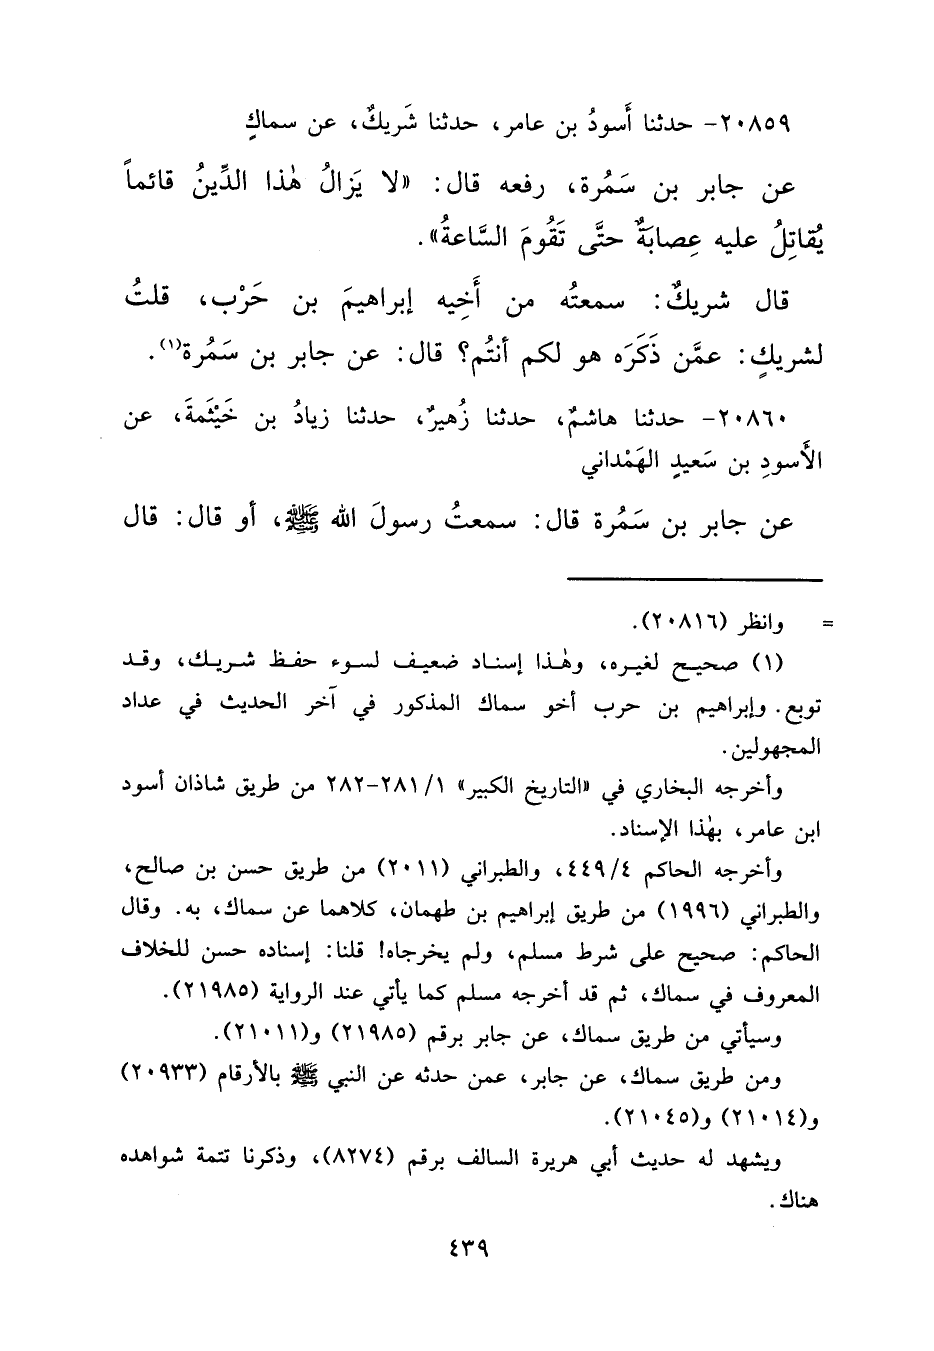 ٢٠٨٥٩- حدثنا أَسودُ بن عامر، حدثنا شَريكٌ، عن سماكٍ
عن جابر بن سَمُرة، رفعه قال: «لا يَزالُ هٰذا الدِّينُ قائماً
يُقاتِلُ عليه عِصابَةٌ حتَّى تَقُومَ السَّاعةُ».
قال شريكٌ: سمعتُه من أَخِيه إبراهيمَ بن حَرْب، قلتُ
لشريكٍ: عمَّن ذَكَرَه هو لكم أنتُم؟ قال: عن جابر بن سَمُرة(١).
٢٠٨٦٠- حدثنا هاشمٌ، حدثنا زُهيرٌ، حدثنا زيادُ بن خَيْثَمةَ، عن
الأَسودِ بن سَعيدٍ الهَمْداني
عن جابر بن سَمُرة قال: سمعتُ رسولَ الله ﷺ، أو قال: قال
= وانظر (٢٠٨١٦).
(١) صحيح لغيره، وهٰذا إسناد ضعيف لسوء حفظ شريك، وقد
توبع. وإبراهيم بن حرب أخو سماك المذكور في آخر الحديث في عداد
المجهولين.
وأخرجه البخاري في «التاريخ الكبير» ١/ ٢٨١-٢٨٢ من طريق شاذان أسود
ابن عامر، بهٰذا الإسناد.
وأخرجه الحاكم ٤/ ٤٤٩، والطبراني (٢٠١١) من طريق حسن بن صالح،
والطبراني (١٩٩٦) من طريق إبراهيم بن طهمان، كلاهما عن سماك، به. وقال
الحاكم: صحيح على شرط مسلم، ولم يخرجاه! قلنا: إسناده حسن للخلاف
المعروف في سماك، ثم قد أخرجه مسلم كما يأتي عند الرواية (٢١٩٨٥).
وسيأتي من طريق سماك، عن جابر برقم (٢١٩٨٥) و(٢١٠١١).
ومن طريق سماك، عن جابر، عمن حدثه عن النبي ﷺ بالأرقام (٢٠٩٣٣)
و(٢١٠١٤) و(٢١٠٤٥).
ويشهد له حديث أبي هريرة السالف برقم (٨٢٧٤)، وذكرنا تتمة شواهده
هناك.
٤٣٩